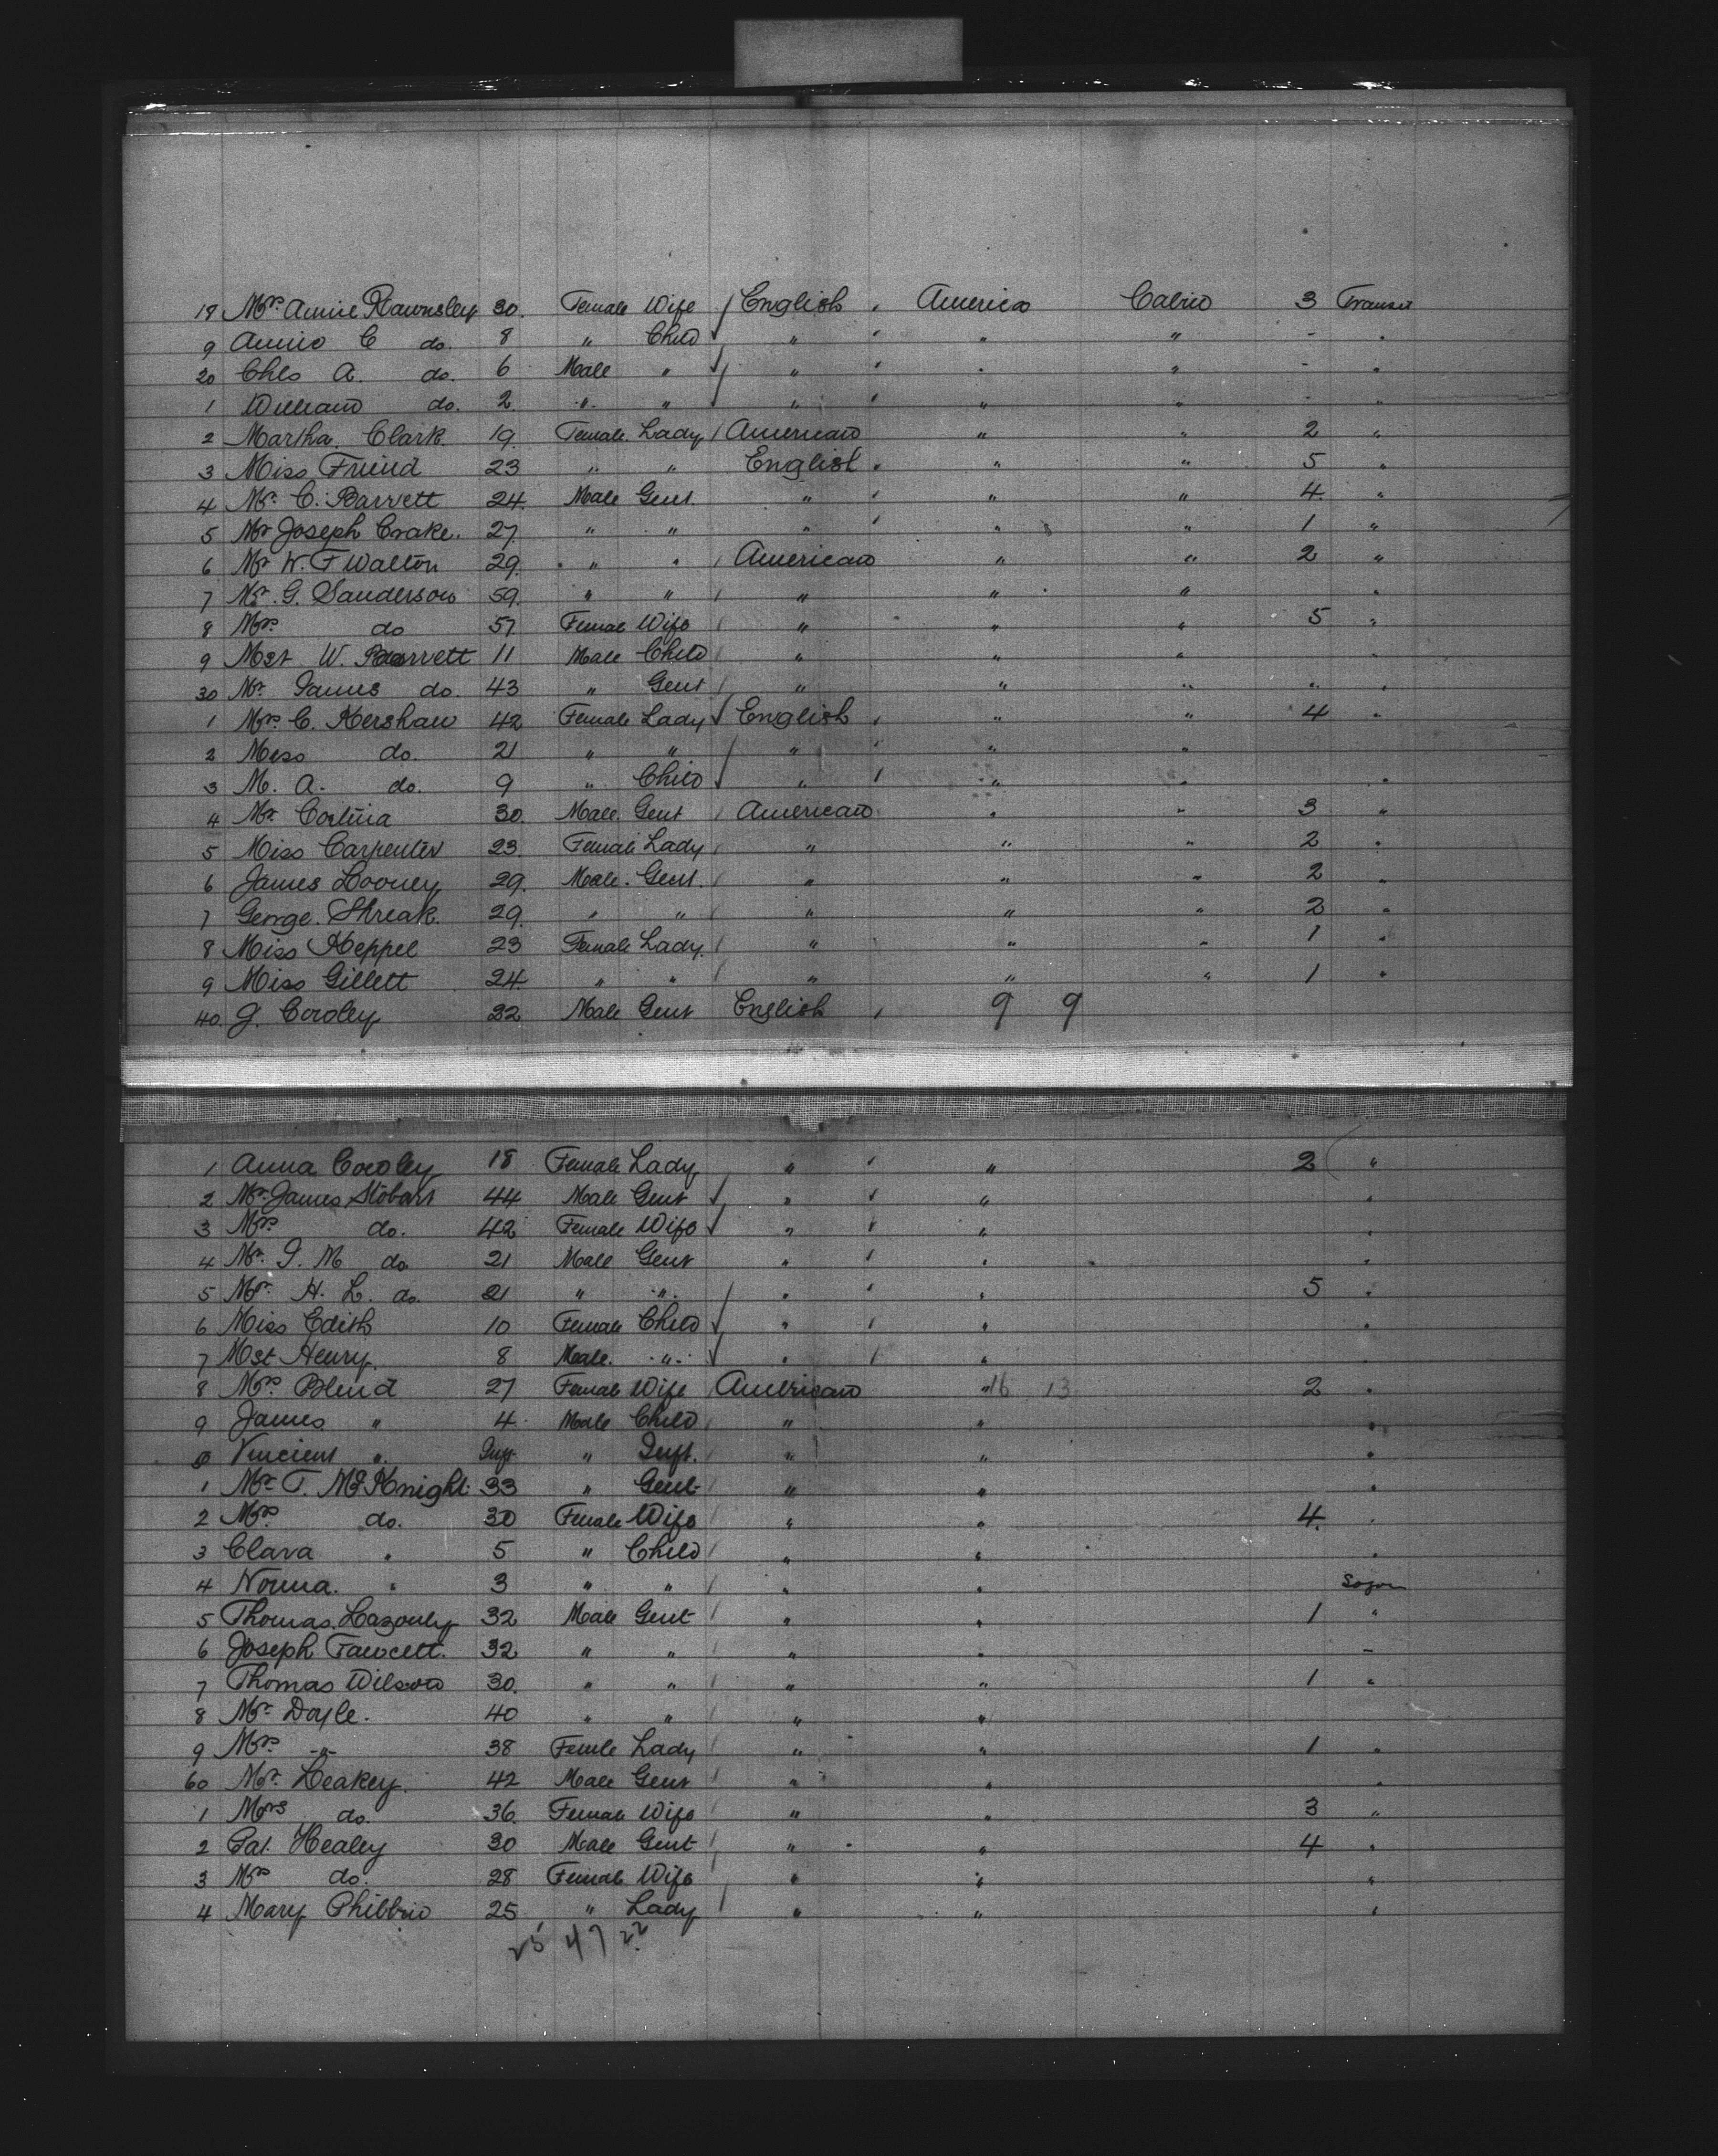 18 Mrs Annie Rawnsley 30. Female Wife English America Cabin 3 Transit
9 Annie C do. 8 " Child " " " - "
20 Chls A. do. 6 Male " " " " - "
1 William do. 2. " " " " " - "
2 Martha. Clark. 19. Female Lady American " " 2 "
3 Miss Friend 23 " " English " " 5 "
4 Mr. C. Barrett 24. Male Gent. " " " 4. "
5 Mr Joseph Crake. 27. " " " " " 1 "
6 Mr W. F Walton 29. " " American " " 2 "
7 Mr. G. Sanderson 59. " " " " " "
8 Mrs do 57 Female Wife " " " 5 "
9 Mst W. Barrett 11 Male Child " " " "
30 Mr. James do. 43 " Gent " " " " "
1 Mrs C. Kershaw 42 Female Lady English " " 4 "
2 Miss do. 21 " " " " "
3 M. A. do. 9 " Child " " " "
4 Mr. 30. Male. Gent American " " 3 "
5 Miss Carpenter 23. Female Lady " " " 2 "
6 James Looney 29. Male. Gent. " " " 2 "
7 George. Streak. 29. " " " " " 2 "
8 Miss Keppel 23 Female Lady. " " " 1 "
9 Miss Gillett 24. " " " " " 1 "
40. J. Cowley 22 Male Gent English 9 9
1 Anna Cowley 18 Female Lady " " 2 "
2 Mr. James Stobart 44 Male Gent " " "
3 Mrs. do. 42 Female Wife " " "
4 Mr. J. M do 21 Male Gent " " "
5 Mr. H. L. do. 21 " " " " 5 "
6 Miss Edith 10 Female Child " " "
7 Mst Henry. 8 Male. " " " "
8 Mrs. Blend 27 Female Wife American " 16 13 2 "
9 James " 4 Male Child " " "
50 Vincient " Inft " Inft. " " "
1 Mr. T. McKnight. 33 " Gent " " "
2 Mrs. do. 30 Female Wife " " 4. "
3 Clara " 5 " Child " " "
4 Norma. " 3 " " " " Sojon
5 Thomas. 32 Male Gent " " 1 "
6 Joseph Fawcett. 32 " " " " -
7 Thomas Wilson 30. " " " " 1 "
8 Mr. Doyle. 40 " " " "
9 Mrs -"- 38 Femle Lady " " 1 "
60 Mr. Leakey. 42 Male Gent " " "
1 Mrs do. 36. Female Wife " " 3 "
2 Pat. Healey 30 Male Gent " " 4 "
3 Mrs do. 28 Female Wife " " "
4 Mary Philbin 25 " Lady " " "
25 47 22